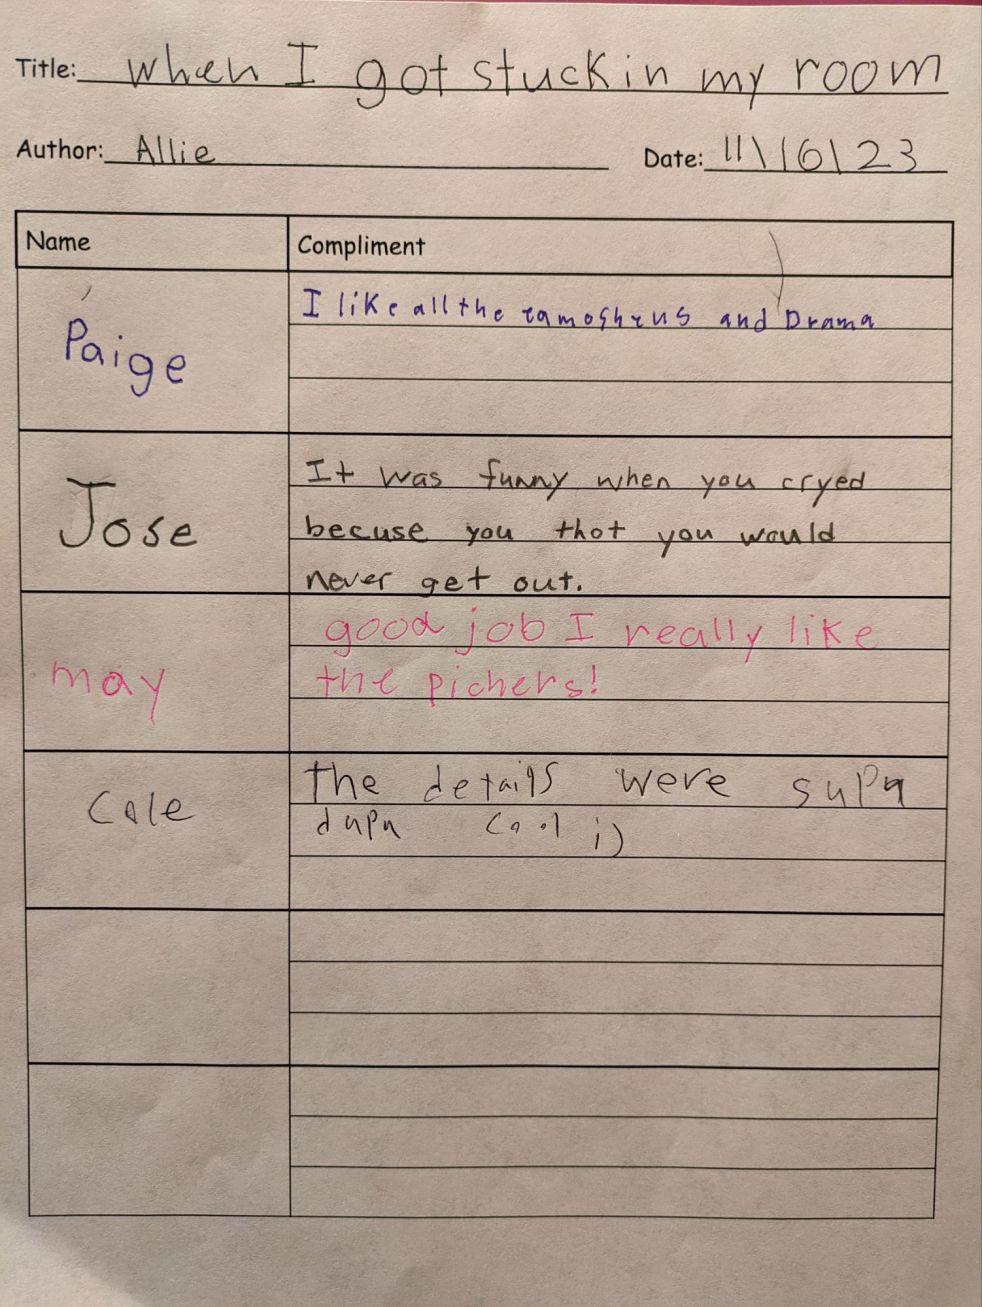 Title: when I got stuck in my room
Author: Allie Date: 11\16\23
Name Compliment
Paige
I like all the and Drama
Jose
It was funny when you cryed
becuse you thot you would
never get out.
may
good job I really like
the pichers!
Cole
the details were supu
dupu cool ;)